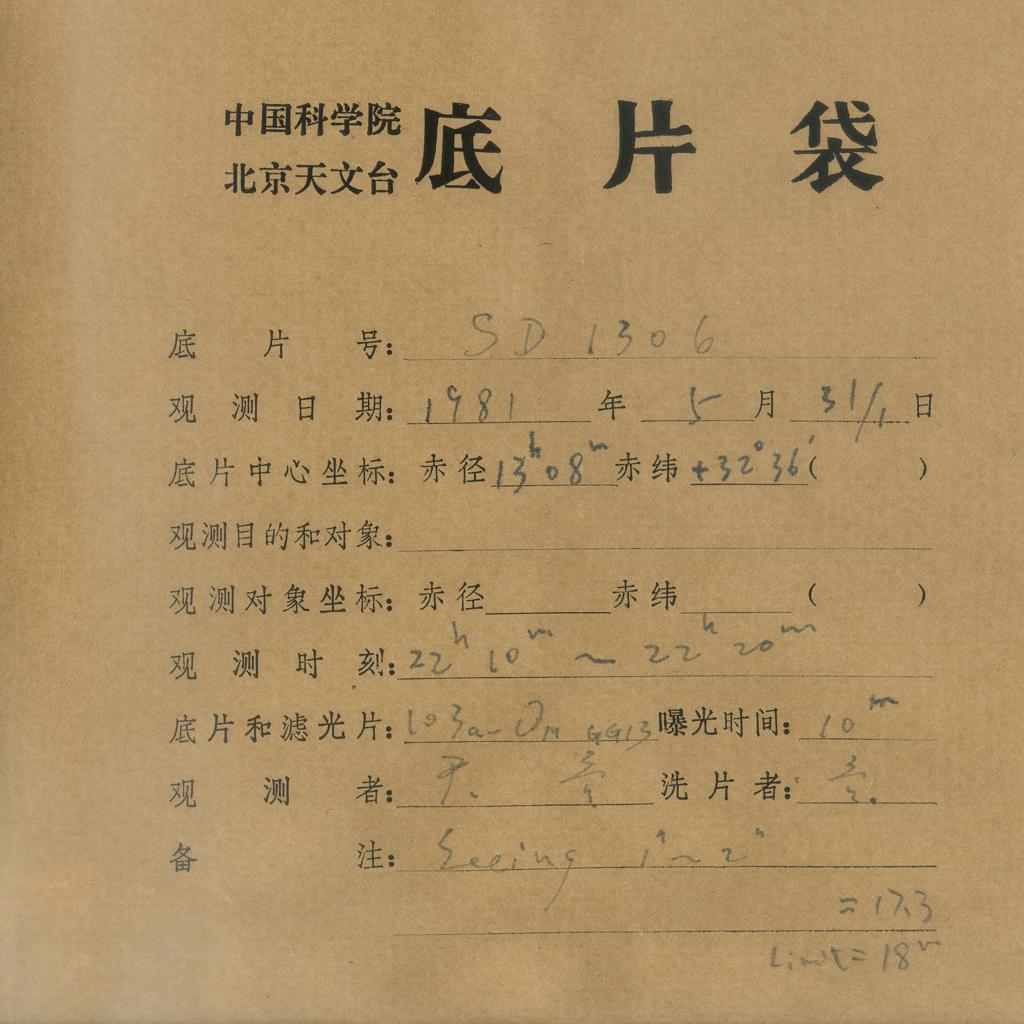 中国科学院
北京天文台
底片袋
底片号: SD 1306
观测日期: 1981 年 5 月 31/1 日
底片中心坐标: 赤径 13h08m 赤纬 +32°36′ ( )
观测目的和对象:
观测对象坐标: 赤径 赤纬 ( )
观测时刻: 22h 10m ~ 22h 20m
底片和滤光片: 103a-D GG13 曝光时间: 10m
观测者: 洗片者:
备注: Seeing 1" ~ 2"
= 17.3
Limit = 18m